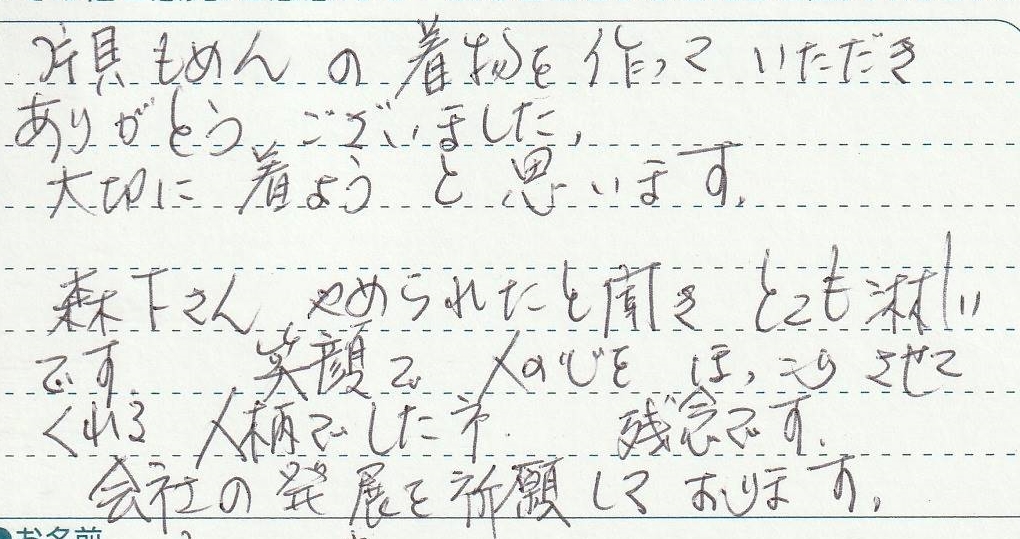 片貝もめんの着物を作っていただき
ありがとうございました。
大切に着ようと思います。
森下さんやめられたと聞きとても淋しい
です。笑顔で人の心をほっこりさせて
くれる人柄でしたネ。残念です。
会社の発展を祈願しております。
お名前